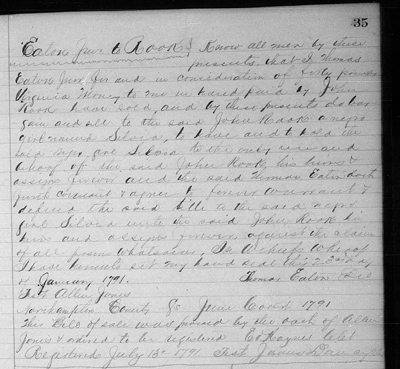 35
Eaton Junr to Rook } Know all men by these
presents, that I Thomas
Eaton Junr for and in consideration of forty pounds
Virginia Money to me in hand paid by John
Rook have sold and by these presents do bar-
gain and sell to the said John Rook a negro
girl named Silvia, to have and to hold the
said negro girl Silvia to the only use and
behoof of the said John Rook, his heirs &
assigns forever and the said Thomas Eaton doth
further covenant & agree to forever warrant &
defend the said title to the said negro
girl Silvia unto the said John Rook his
heirs and assigns forever against the claim
of all persons whatsoever. In Witness Whereof
I have hereunto set my hand seal this 23rd day
of January 1791. Thomas Eaton
Test Allen Jones
Northampton County Sc. June Court 1791
This Bill of sale was proved by the oath of Allen
Jones & ordered to be registered
Registered July 13th 1791 Test